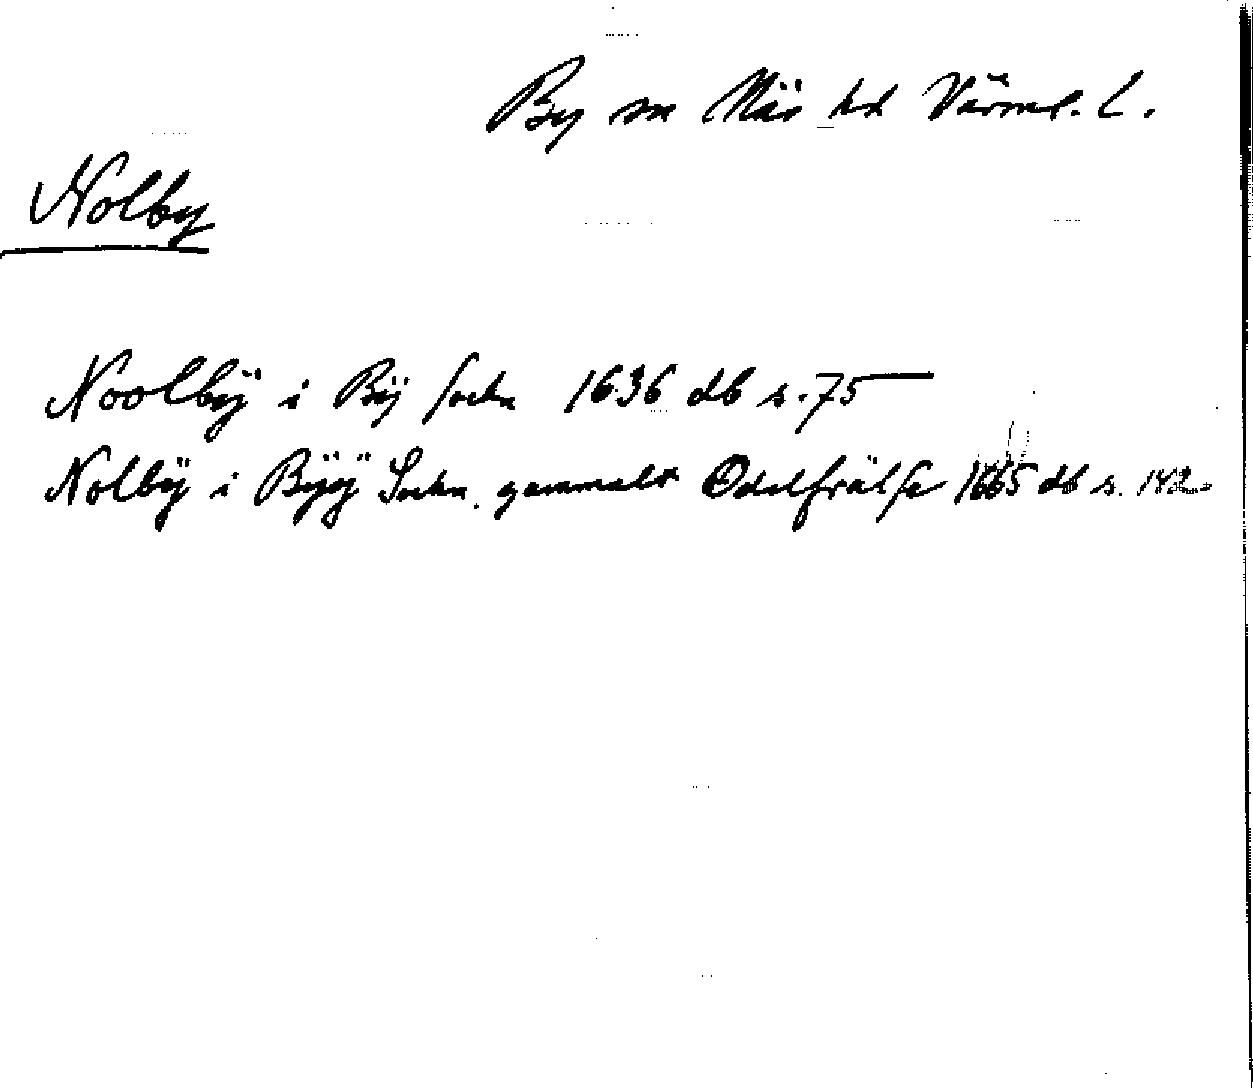 By sn Näs hd Värml. l.
Nolby
Noolbÿ i Bÿ sochn 1636 db s. 75
Nolbÿ i Bÿÿ Sochn, gammalt Odelfrälse 1665 db s. 142